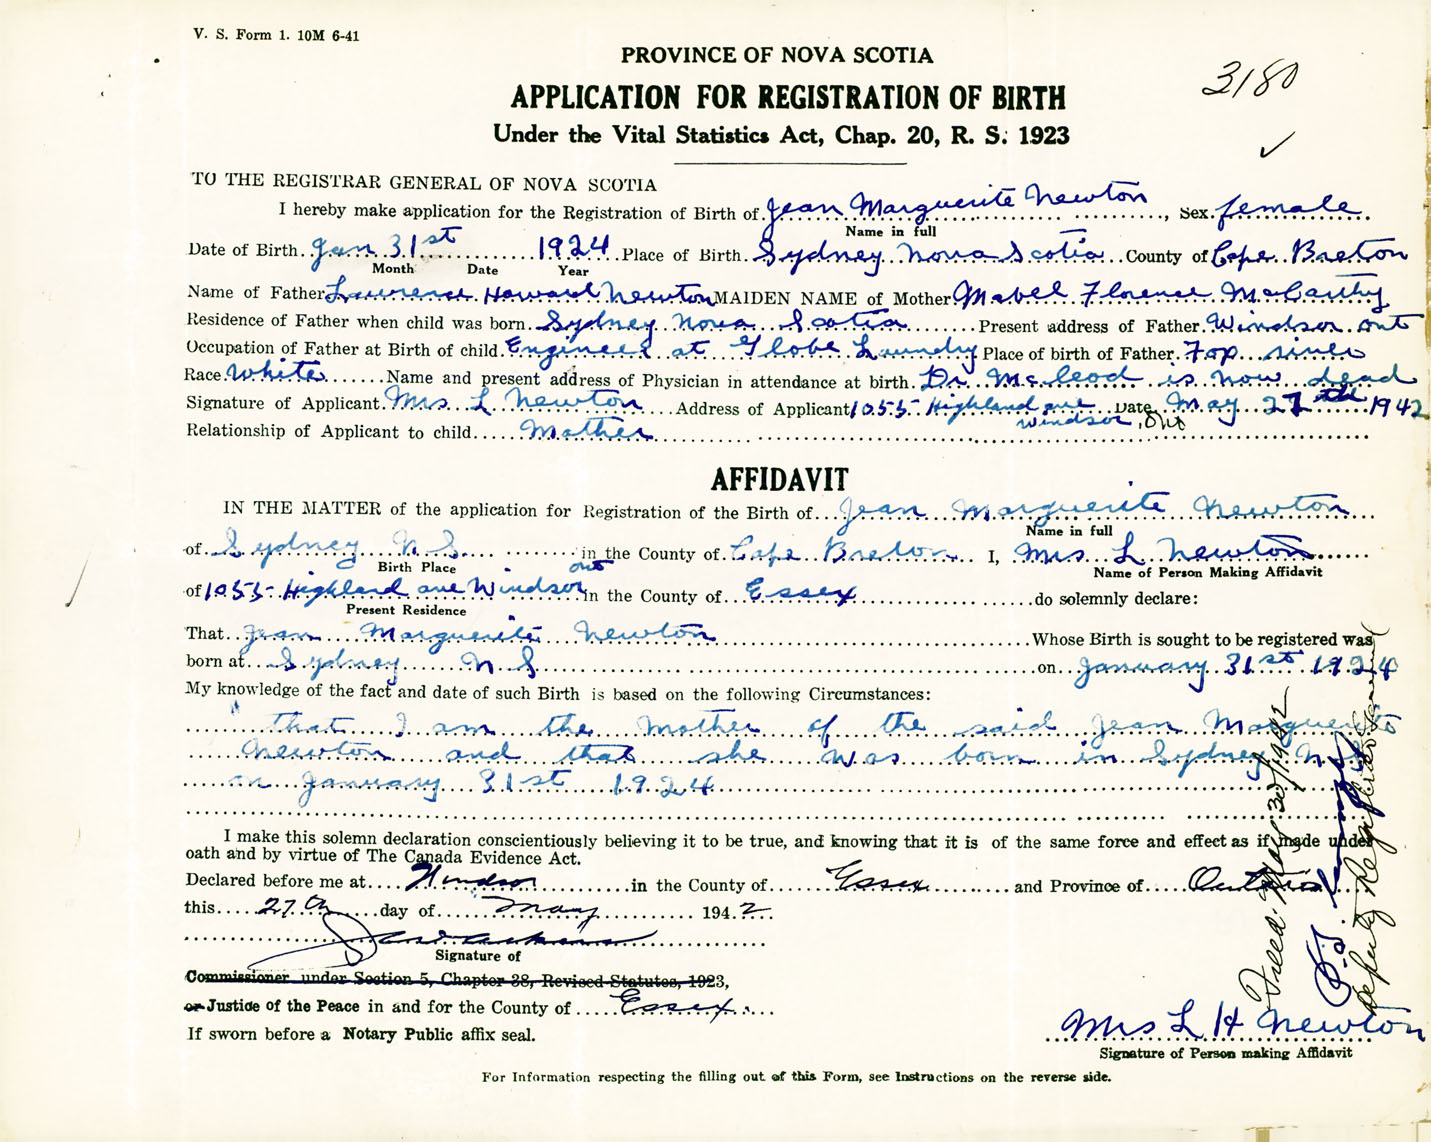 V. S. Form 1. 10M 6-41
PROVINCE OF NOVA SCOTIA
3180
APPLICATION FOR REGISTRATION OF BIRTH
Under the Vital Statistics Act, Chap. 20, R. S. 1923
TO THE REGISTRAR GENERAL OF NOVA SCOTIA
I hereby make application for the Registration of Birth of Jean Marguerite Newton, Sex female
Name in full
Date of Birth Jan 31st 1924 Place of Birth Sydney Nova Scotia County of Cape Breton
Month Date Year
Name of Father Lawrence Howard Newton MAIDEN NAME of Mother Mabel Florence McCarthy
Residence of Father when child was born Sydney Nova Scotia Present address of Father Windsor ont
Occupation of Father at Birth of child Engineer at Globe Laundry Place of birth of Father Fop river
Race White Name and present address of Physician in attendance at birth Dr McLeod is now dead
Signature of Applicant Mrs L Newton Address of Applicant 1055 Highland ave Date May 27th 1942
Windsor, Ont
Relationship of Applicant to child Mother
AFFIDAVIT
IN THE MATTER of the application for Registration of the Birth of Jean Marguerite Newton
Name in full
of Sydney N.S. in the County of Cape Breton I, Mrs L Newton
Birth Place Name of Person Making Affidavit
of 1055 Highland ave Windsor ont in the County of Essex do solemnly declare:
Present Residence
That Jean Marguerite Newton Whose Birth is sought to be registered was
born at Sydney N S on January 31st 1924
My knowledge of the fact and date of such Birth is based on the following Circumstances:
that I am the Mother of the said Jean Marguerite
Newton and that she was born in Sydney N.S.
on January 31st 1924
I make this solemn declaration conscientiously believing it to be true, and knowing that it is of the same force and effect as if made under
oath and by virtue of The Canada Evidence Act.
Declared before me at Windsor in the County of Essex and Province of Ontario
this 27th day of May 1942
Signature of
Commissioner under Section 5, Chapter 38, Revised Statutes, 1923,
or Justice of the Peace in and for the County of Essex
If sworn before a Notary Public affix seal.
Mrs L H Newton
Signature of Person making Affidavit
For Information respecting the filling out of this Form, see Instructions on the reverse side.
Filed May 30/1942
Deputy Registrar General